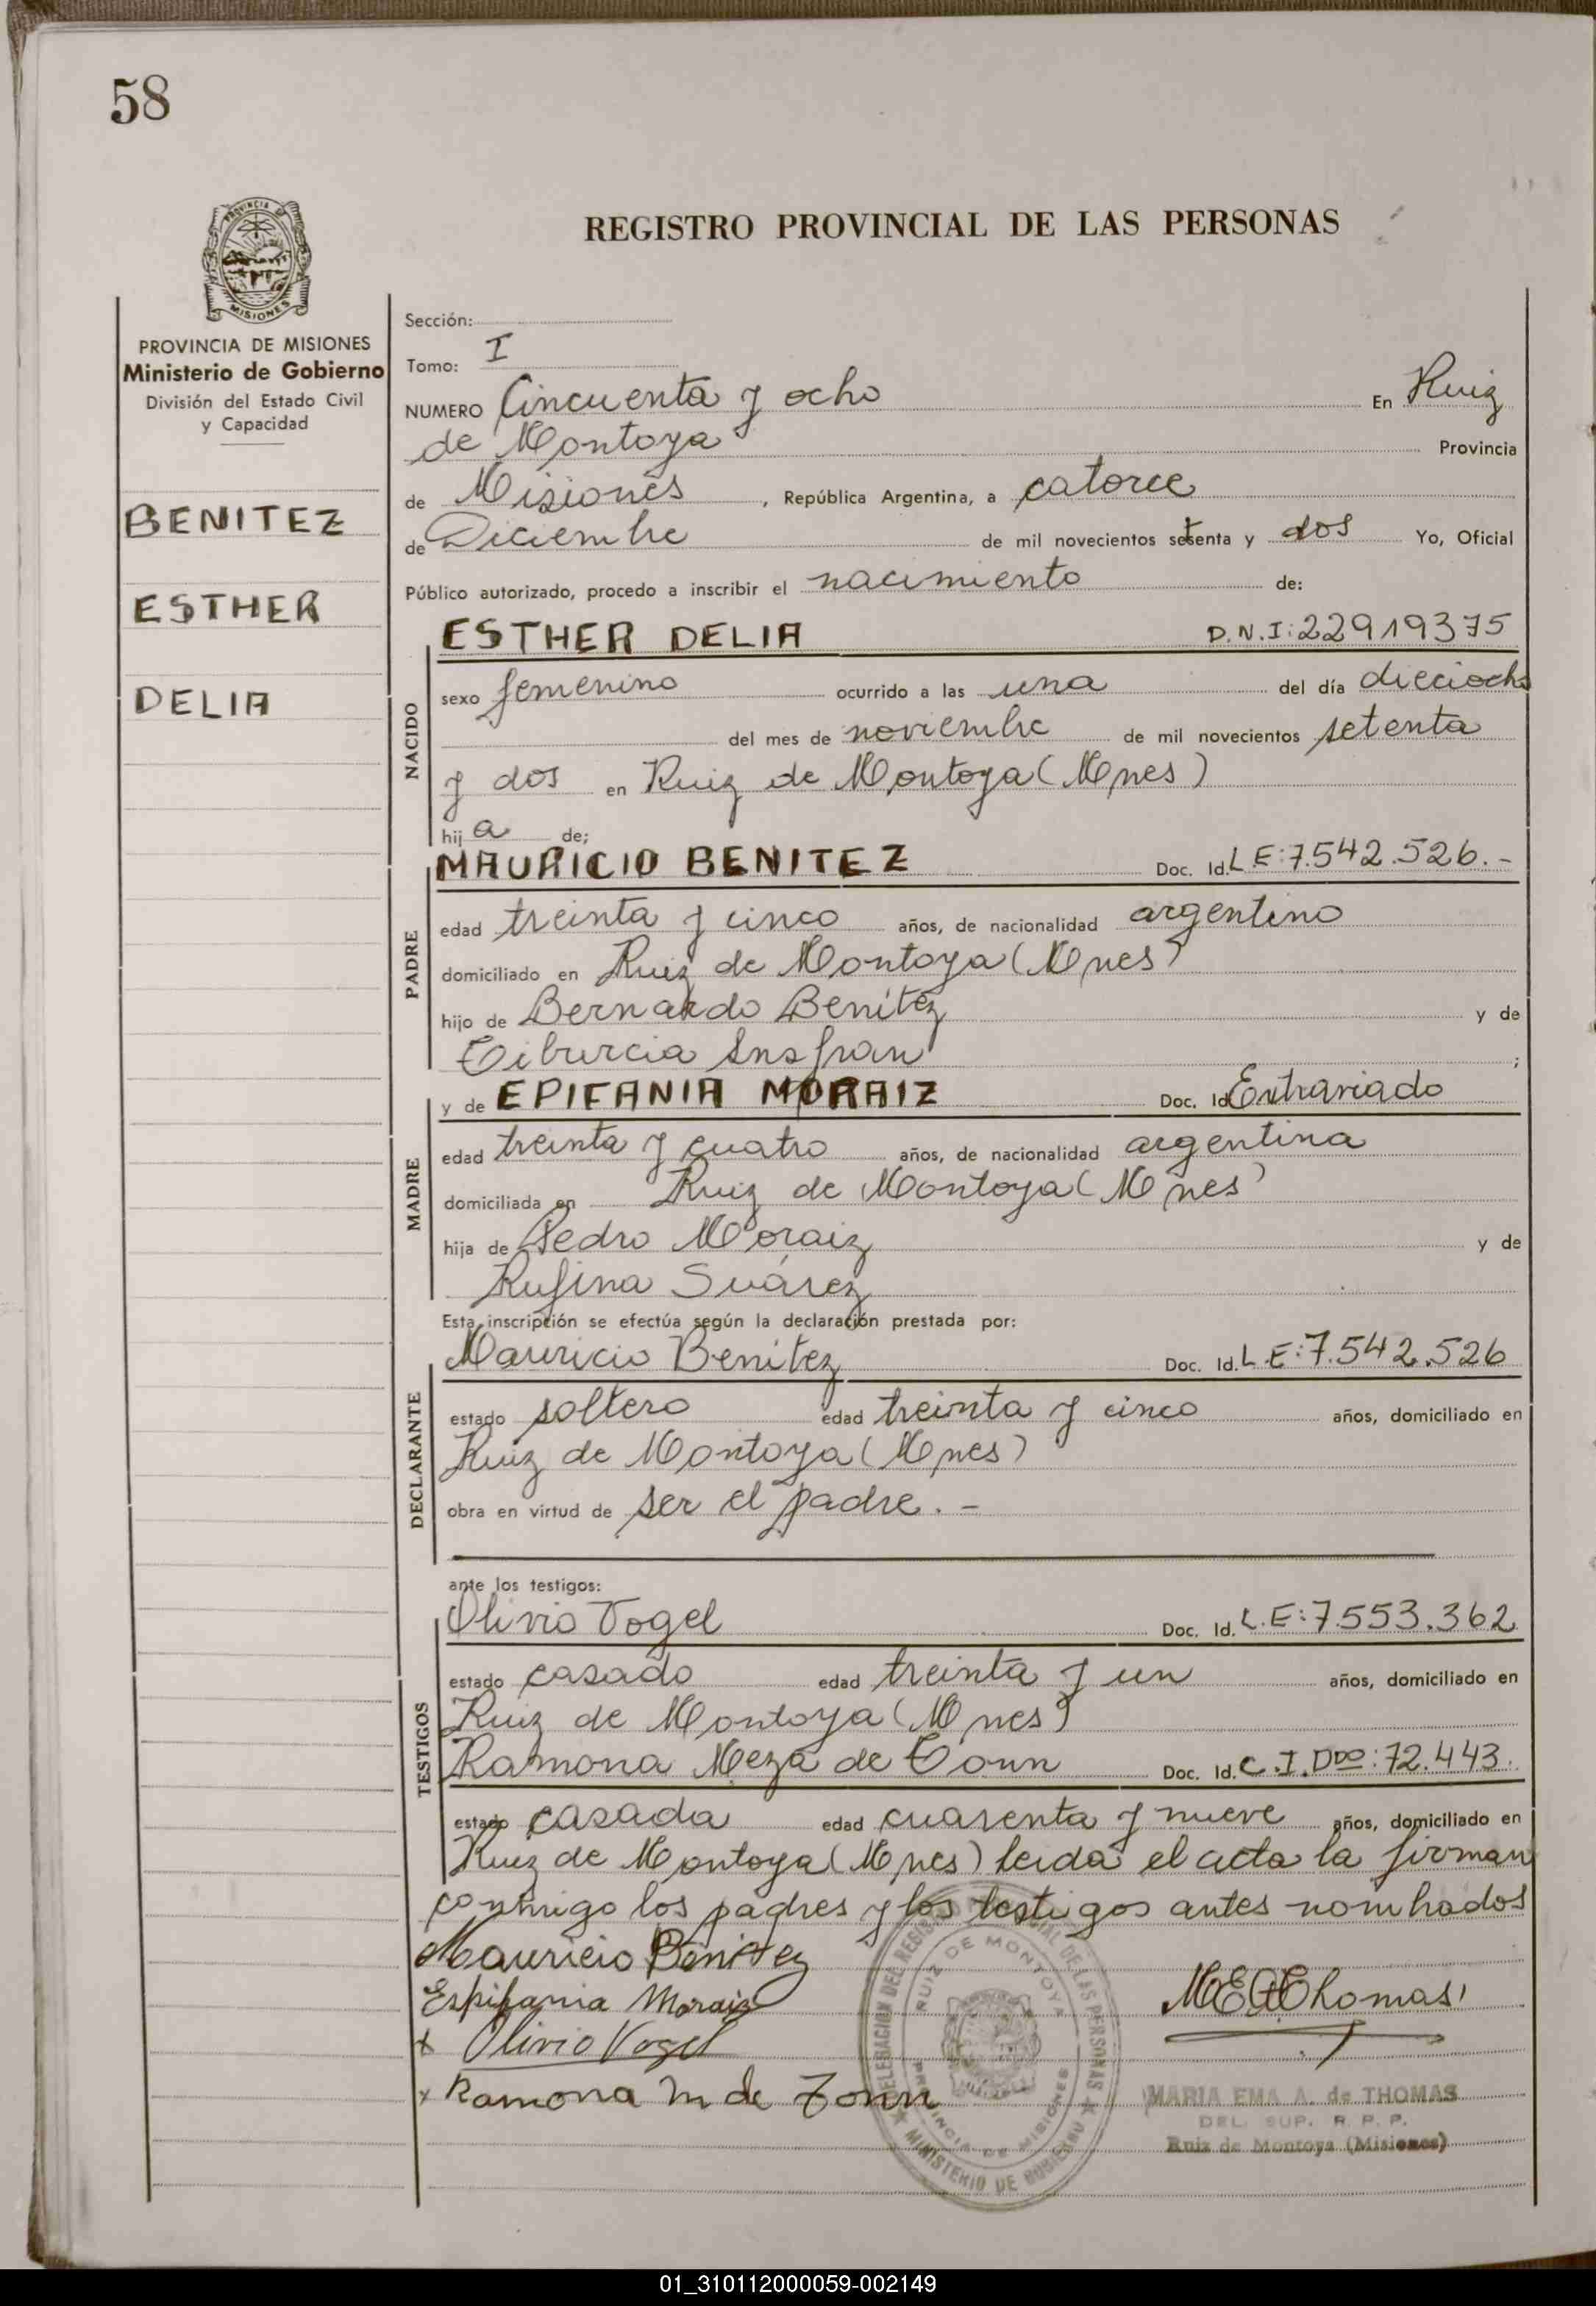 58
PROVINCIA DE MISIONES
Ministerio de Gobierno
División del Estado Civil
y Capacidad
BENITEZ
ESTHER
DELIA
REGISTRO PROVINCIAL DE LAS PERSONAS
Sección:
Tomo: I
NUMERO Cincuenta y ocho En Ruiz
de Montoya Provincia
de Misiones, República Argentina, a catorce
de Diciembre de mil novecientos setenta y dos Yo, Oficial
Público autorizado, procedo a inscribir el nacimiento de:
ESTHER DELIA D.N.I:22919375
NACIDO
sexo femenino ocurrido a las una del día dieciocho
del mes de noviembre de mil novecientos setenta
y dos en Ruiz de Montoya (Mnes)
hija de;
MAURICIO BENITEZ Doc. Id. L E:7.542.526.-
PADRE
edad treinta y cinco años, de nacionalidad argentino
domiciliado en Ruiz de Montoya (Mnes)
hijo de Bernardo Benitez y de
Tiburcia Insfran ;
y de EPIFANIA MORAIZ Doc. Id Extraviado
MADRE
edad treinta y cuatro años, de nacionalidad argentina
domiciliada en Ruiz de Montoya (Mnes)
hija de Pedro Moraiz y de
Rufina Suárez
Esta inscripción se efectúa según la declaración prestada por:
Mauricio Benitez Doc. Id. L.E:7.542.526
DECLARANTE
estado soltero edad treinta y cinco años, domiciliado en
Ruiz de Montoya (Mnes)
obra en virtud de ser el padre.-
ante los testigos:
Olivio Vogel Doc. Id. L.E:7.553.362
TESTIGOS
estado casado edad treinta y un años, domiciliado en
Ruiz de Montoya (Mnes)
Ramona Meza de Tonn Doc. Id. C.I.Ddo:72.443.
estado casada edad cuarenta y nueve años, domiciliado en
Ruiz de Montoya (Mnes) leida el acta la firman
conmigo los padres y los testigos antes nombrados
Mauricio Benitez
Espifania Moraiz
x Olivio Vogel
x Ramona M de Tonn
MEAThomas
DELEGACION DEL REGISTRO PROVINCIAL DE LAS PERSONAS
RUIZ DE MONTOYA
PROVINCIA DE MISIONES
MINISTERIO DE GOBIERNO
MARIA EMA A. de THOMAS
DEL. SUP. R. P. P.
Ruiz de Montoya (Misiones)
01_310112000059-002149